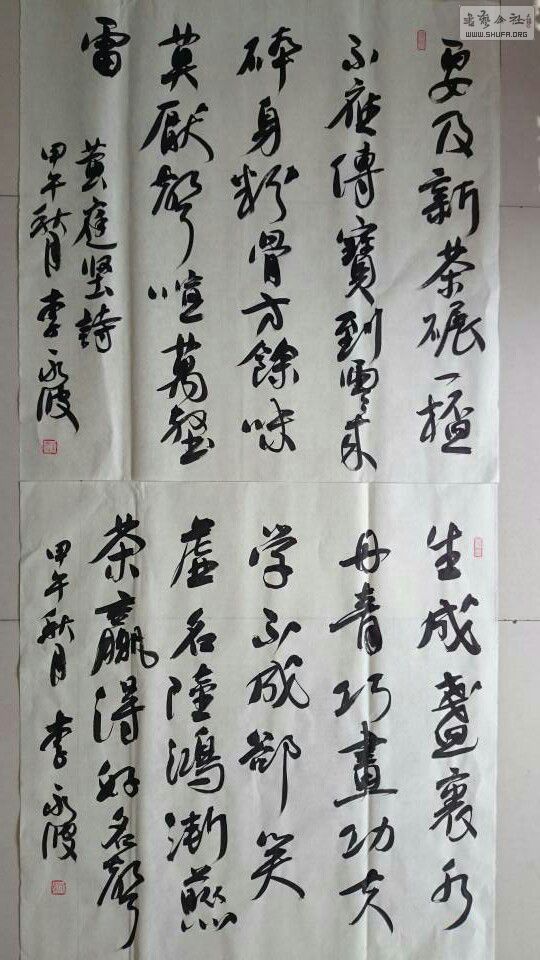 書藝公社
WWW.SHUFA.ORG
要及新茶碾一桮
不應傳寶到雲来
碎身粉骨方餘味
莫厭聲喧萬壑
雷
黄庭坚詩
甲午秋月 李永波
生成盞裏水
丹青巧畫功夫
学不成卻笑
虚名陸鴻漸煎
茶贏得好名聲
甲午秋月 李永波